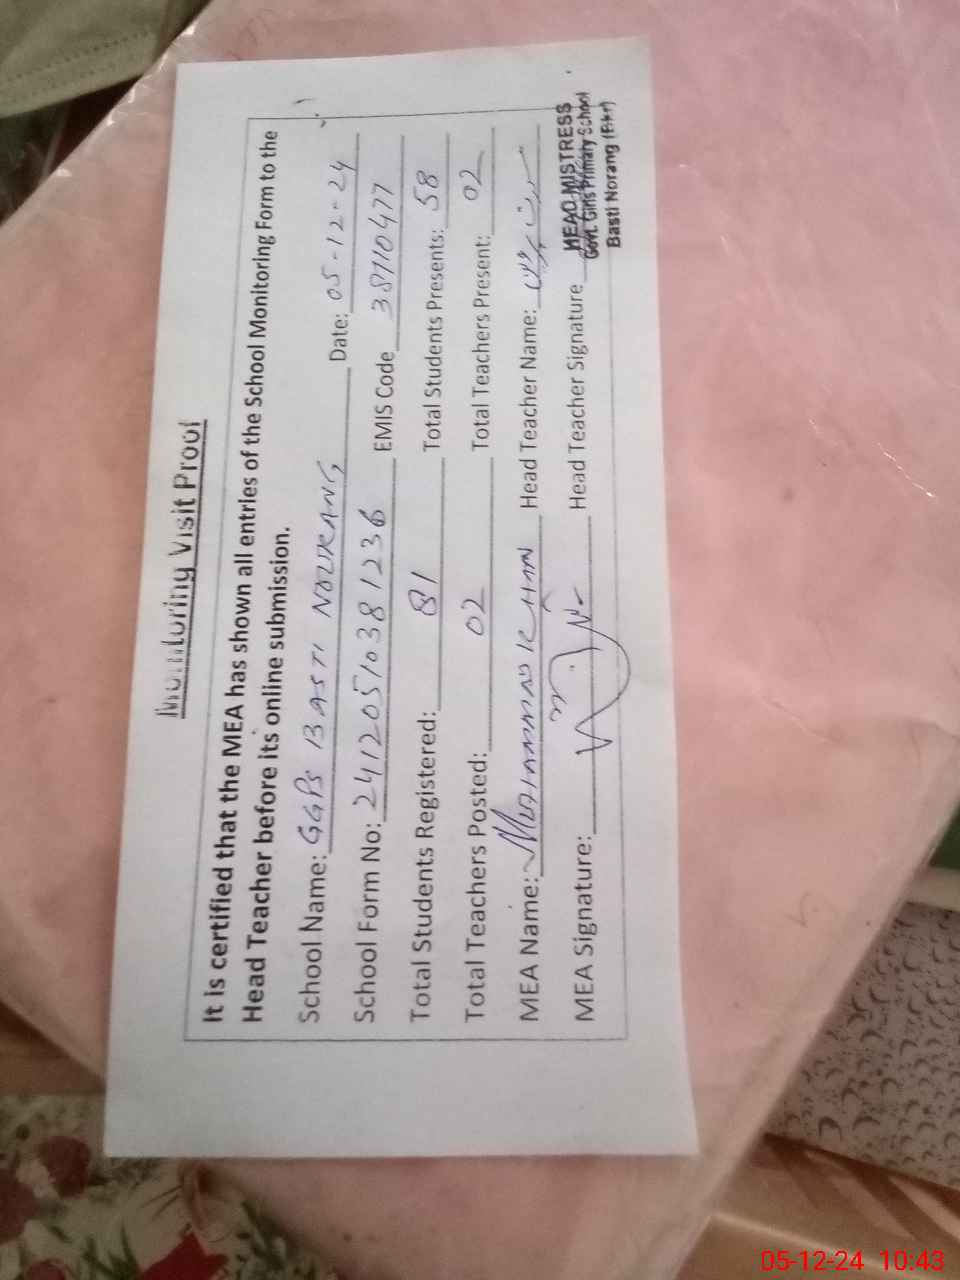 Monitoring Visit Proof
It is certified that the MEA has shown all entries of the School Monitoring Form to the
Head Teacher before its online submission.
School Name: GGPS BASTI NOURANG Date: 05-12-24
School Form No: 24120510381236 EMIS Code 38110477
Total Students Registered: 81 Total Students Presents: 58
Total Teachers Posted: 02 Total Teachers Present: 02
MEA Name: MUHAMMAD KHAN Head Teacher Name:
MEA Signature: Head Teacher Signature
HEAD MISTRESS
Govt. Girls Primary School
Basti Norang (Bkr)
05-12-24 10:43